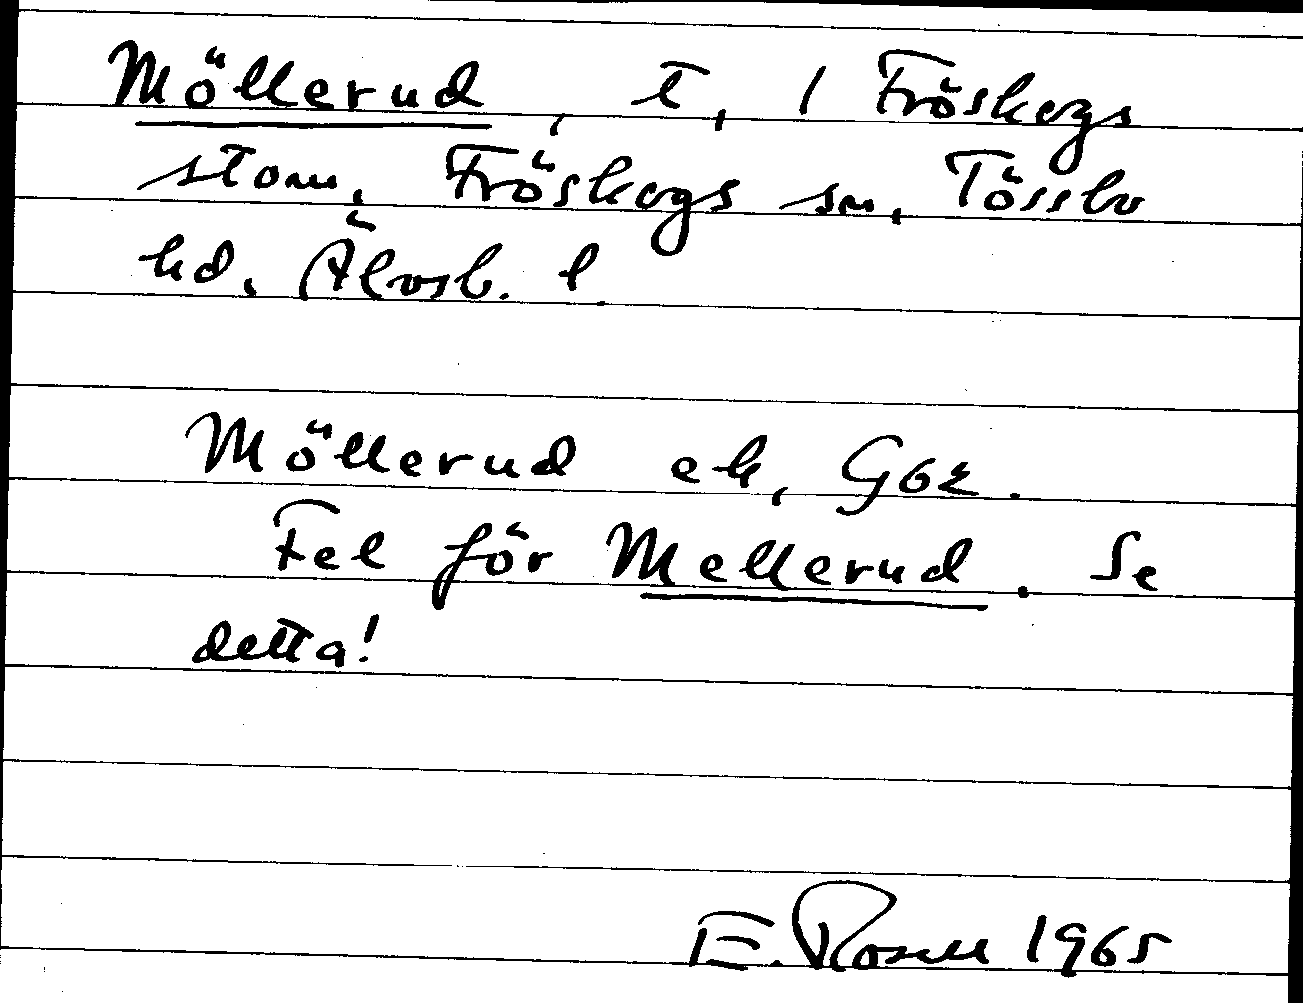 Möllerud, t, 1 Fröskogs
stom, Fröskogs sn, Tössbo
hd, Älvsb. l.
Möllerud ek, G62.
Fel för Mellerud. Se
detta!
E. Rosell 1965